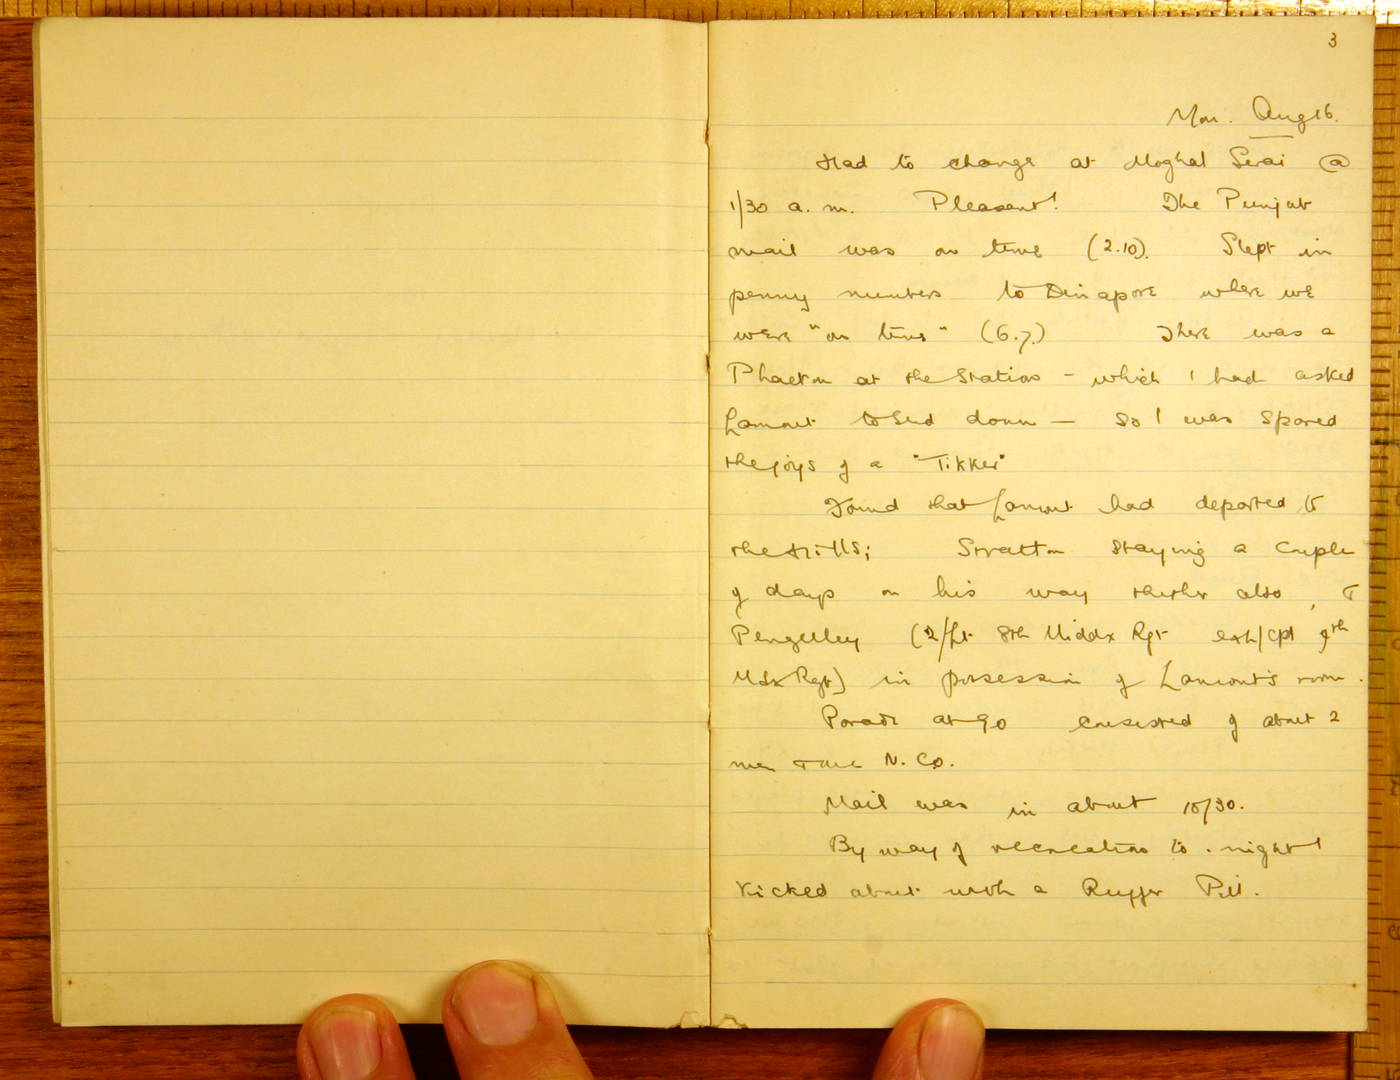 3
Mon. Aug 16.
Had to change at Moghal Serai @
1/30 a.m. Pleasant! The Punjab
mail was on time (2.10). Slept in
penny numbers to Dinapore where we
were "on time" (6.7.) There was a
Phaeton at the station - which I had asked
Lamont to send down — so I was spared
the joys of a "Tikker"
Found that Lamont had departed to
the Hills; Stratton staying a couple
of days on his way thither also, &
Pengelley (2/Lt 8th Middx Rgt Capt 9th
Mdx Rgt) in possession of Lamont's room.
Parade at 9.0 consisted of about 2
men & one N. Co.
Mail was in about 10/30.
By way of recreation to-night I
kicked about with a Rugger Pill.